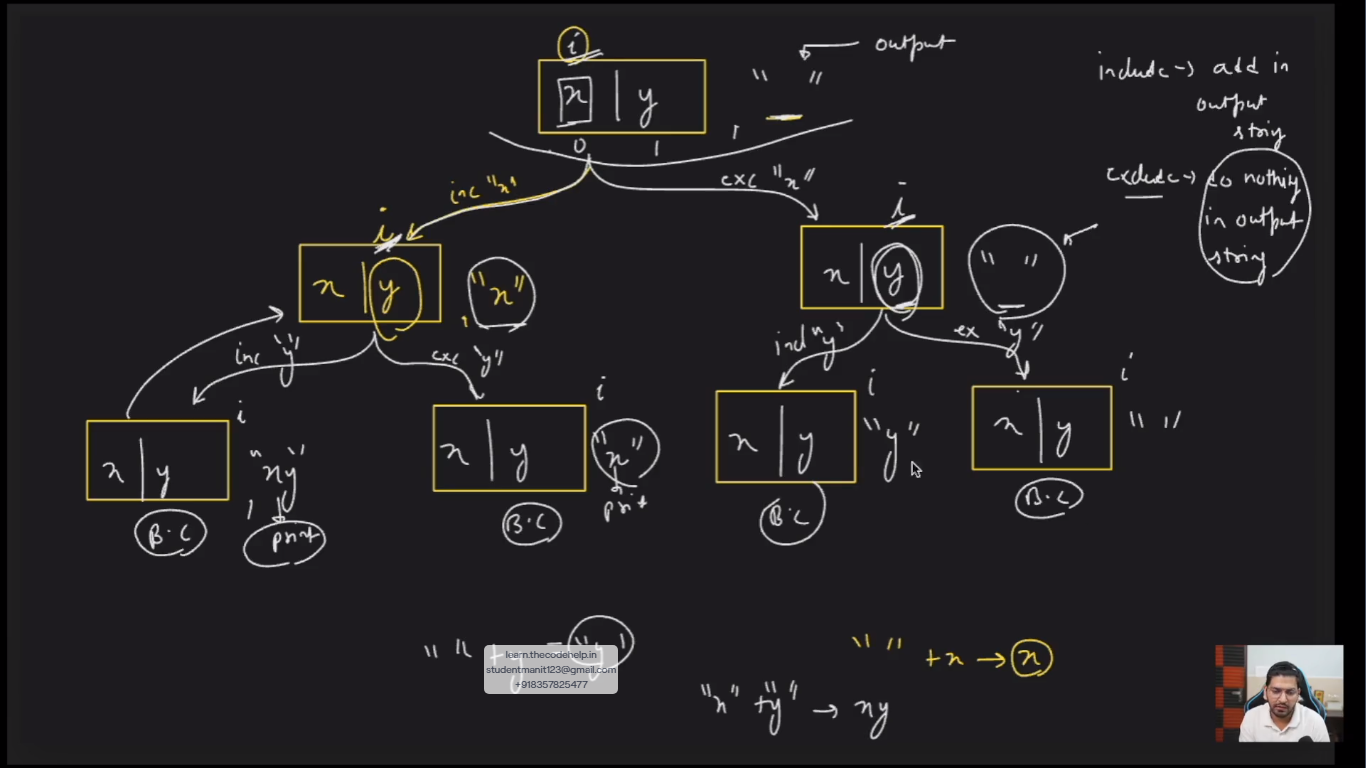 i
output
x | y
" "
,
0 1
include → add in
output
string
exclude → do nothing
in output
string
inc "x"
exc "x"
i
x | y
, "x"
i
x | y
" "
inc "y"
exc "y"
incl "y"
ex "y"
i
x | y
, "xy"
B.C
print
i
x | y
"x"
B.C
print
i
x | y
"y"
B.C
i
x | y
" "
B.C
" " + y = "y"
learn.thecodehelp.in
studentmanit123@gmail.com
+918357825477
" " + x → x
"x" + "y" → xy